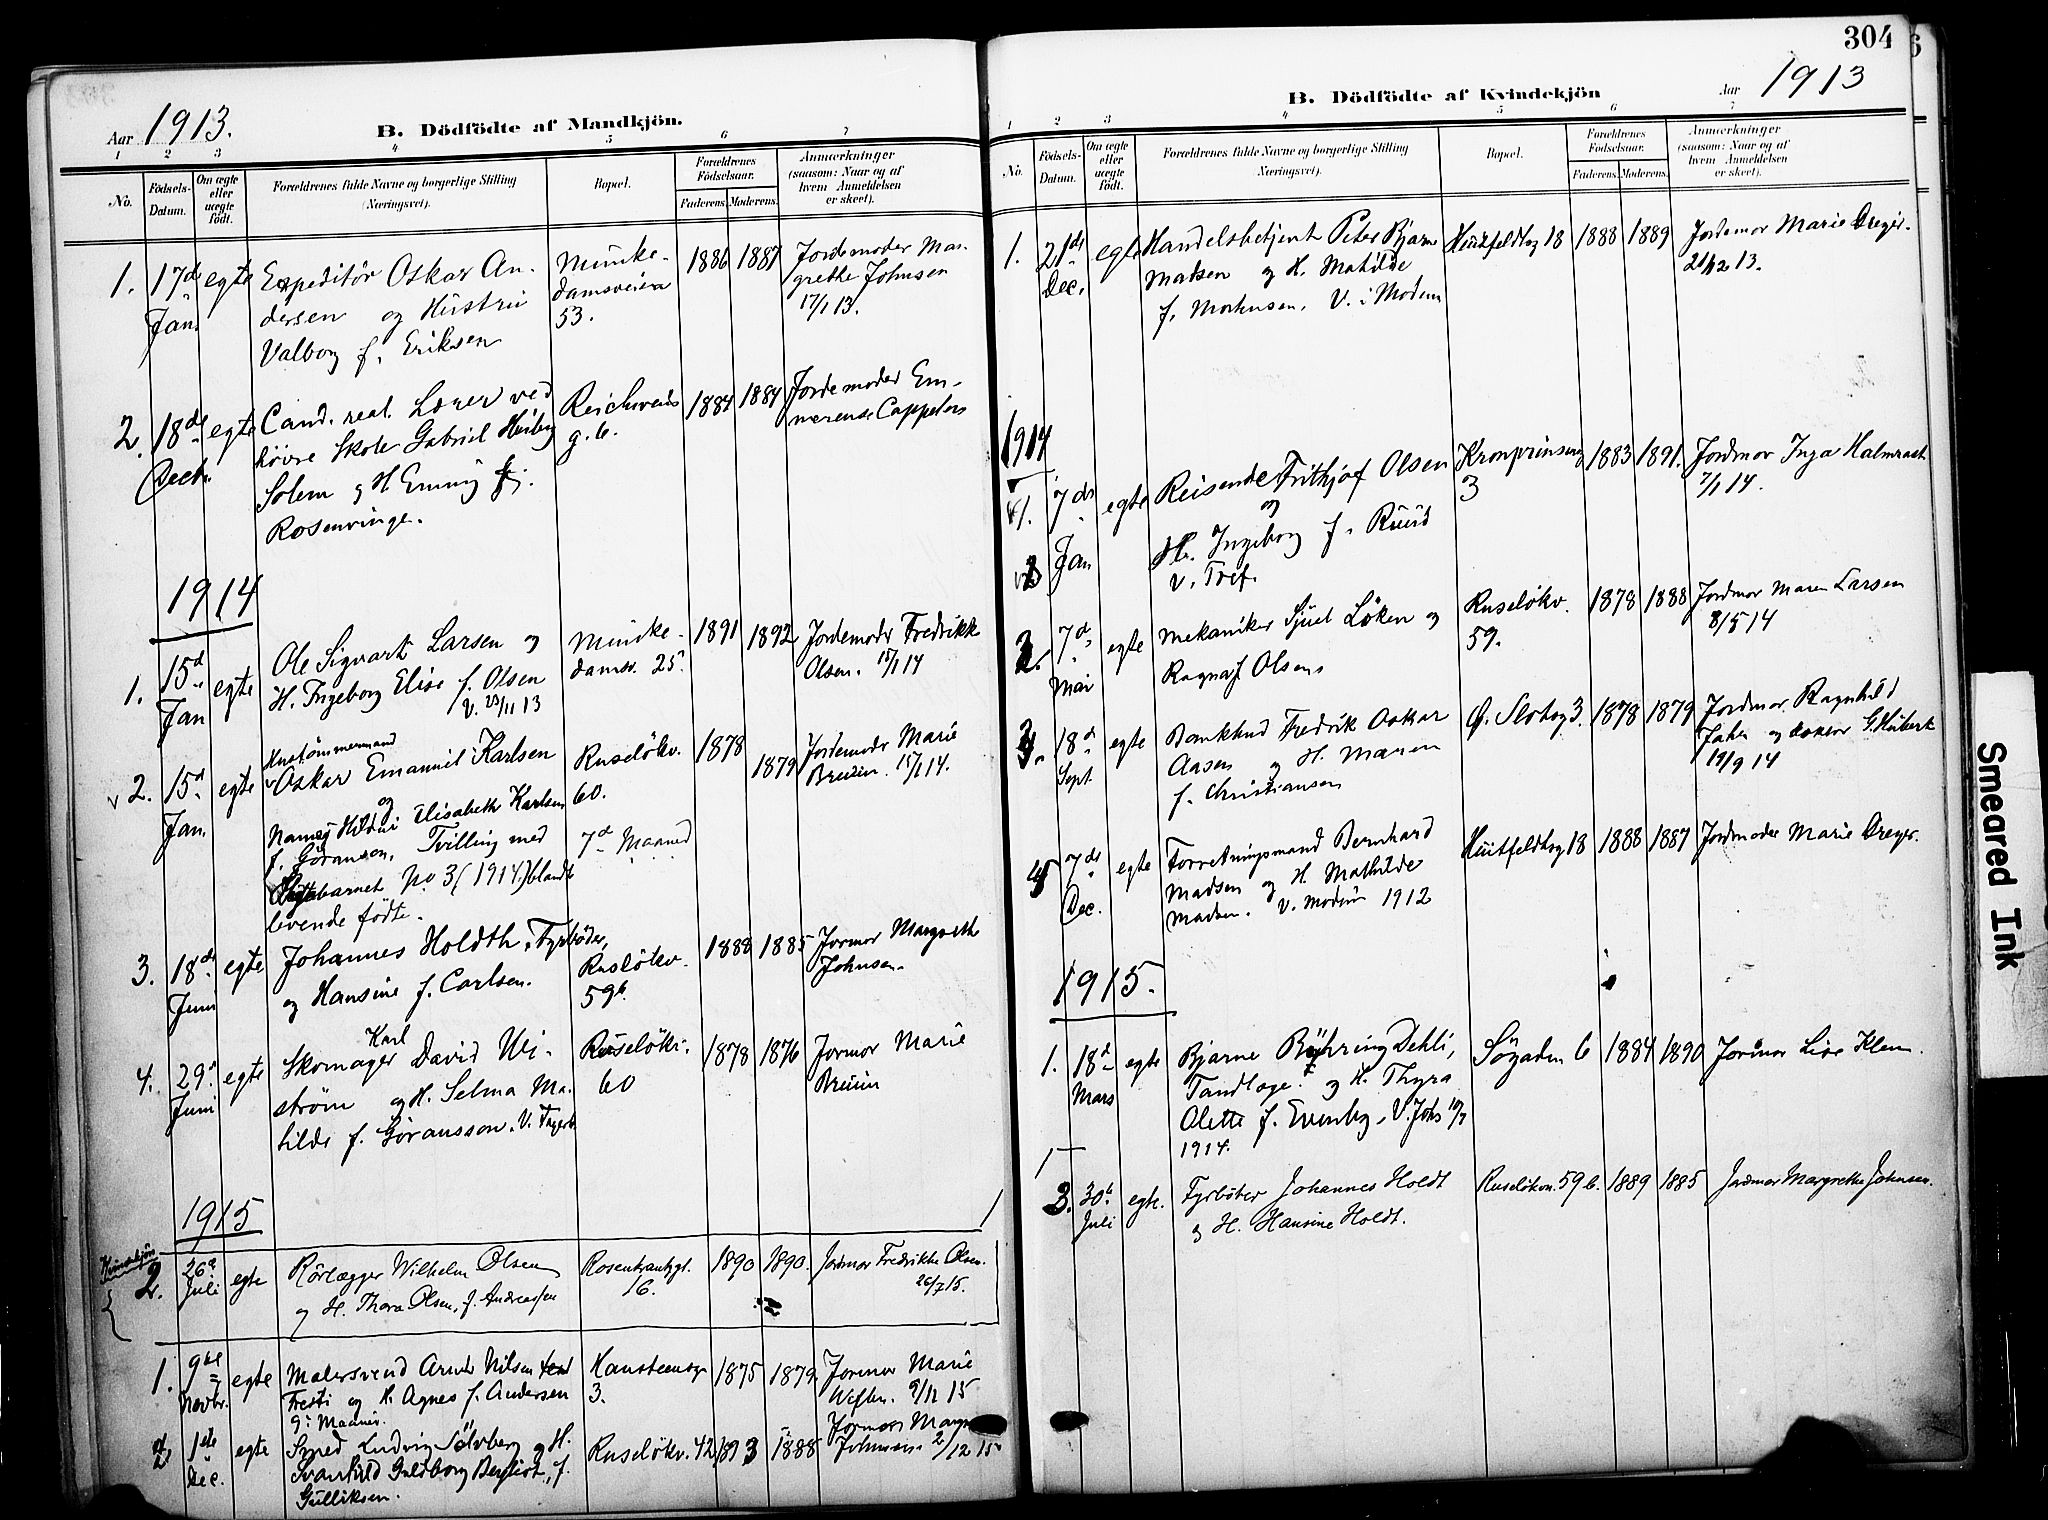 Aar 1913.
B. Dödfödte af Mandkjön.
1 2 3 4 5 6 7
No. Födsels-Datum. Om ægte eller uægte födt. Forældrenes fulde Navne og borgerlige Stilling (Næringsvei). Bopæl. Forældrenes Födselsaar. Faderens. Moderens. Anmærkninger (saasom: Naar og af hvem Anmeldelsen er skeet).
1. 17d Jan. egte Expeditör Oskar An-
dersen og Hustru
Valborg f. Eriksen
Munke-
damsveien
53.
1886 1887 Jordemoder Mar-
grethe Johnsen
17/1 13.
2. 18de Decbr. egte Cand. real. Lærer ved
høire Skole Gabriel Heiberg
Solem og H Emmy f.
Rosenvinge.
g. 6.
1884 1884 Jordemoder Em-
merense Cappelen
1914
1. 15d Jan egte Ole Sigvart Larsen og
H. Ingeborg Elise f. Olsen
V. 23/11 13
Munke-
damsv. 25.
1891 1892 Jordemoder Fredrikke
Olsen. 15/1 14
v 2. 15d Jan. egte Hustömmermand
Oskar Emanuel Karlsen
og
Nanny Hildur Elisabeth Karlsen
f. Göransson. Tvilling med
barnet No 3 (1914) blandt
levende födte.
Ruselökv.
60.
7d Maaned
1878 1879 Jordemoder Marie
Breuin. 15/1 14.
3. 18de Juni egte Johannes Holdth, Fyrböder,
og Hansine f. Carlsen.
Ruslökv.
59b.
1888 1885 Jormor Margreth
Johnsen.
4. 29d Juni egte Karl
Skomager David Wi-
ström og H. Selma Ma-
tilde f. Göransson. V. Fagerb
Ruselökv.
60
1878 1876 Jormor Marie
Breuin
1915
Kvindekjön
2. 26d Juli egte Rörlægger Wilhelm Olsen
og H. Thora Olsen, f. Andreassen
Rosenkrantzgt.
16.
1890 1890. Jordmor Fredrikke Olsen.
26/7 15.
1. 9de Novbr. egte Malersvend Arne Nilsen
og H. Agnes f. Andersen
9. Maaned.
Hansteensg
3.
1875 1879 Jormor Marie
9/11 15
2 1ste Dec. egte Smed Ludvig Sölvberg og H.
Svanhild Guldborg Bergliot, f.
Gulliksen.
Ruselökv. 42 1893 1888 Jormor Margr
Johnsen 2/12 15
304
B. Dödfödte af Kvindekjön
Aar 1913
1 2 3 4 5 6 7
No. Födsels-Datum. Om ægte eller uægte födt. Forældrenes fulde Navne og borgerlige Stilling (Næringsvei). Bopæl. Forældrenes Födselsaar. Faderens. Moderens. Anmærkninger (saasom: Naar og af hvem Anmeldelsen er skeet).
1. 21de Dec. egte Handelsbetjent Peter Bjarne
Madsen og H. Matilde
f. Morhusen. V. i Modum
Huitfeldtsg 18 1888 1889 Jordemor Marie Dreyer.
21/12 13.
1914
1. 7de Jan egte Reisende Frithjof Olsen
og
Hr. Ingeborg f. Ruud
V. Tref.
Kronprinsensg
3
1883 1891. Jordmor Inga Halmrast
7/1 14.
2. 7de Mai egte Mekaniker Sjuel Löken og
Ragna f Olsen
Ruselökv.
59.
1878 1888 Jordmor Maren Larsen
8/5 14
3. 18d Sept. egte Bankbud Fredrik Oskar
Aasen og H. Maren
f. Christiansen
Ø. Slotsg 3. 1878 1879 Jordmor Ragnhild
og doktor G. Hubert
19/9 14
4 7de Dec. egte Forretningsmand Bernhard
Madsen og H. Mathilde
Madsen. V. Modum 1912
Huitfeldtsg 18 1888 1887 Jordmoder Marie Dreyer.
1915.
1. 18d Mars egte Bjarne Böhring Dehli,
Tandlæge. og H. Thyra
Olette f. Evenby. V. Johs 10/7
1914.
Sögaden 6 1884 1890 Jormor Lise Klem.
3. 30te Juli egte. Fyrböter Johannes Holdt
og H. Hansine Holdt.
Ruselökv. 59 b. 1889 1885 Jordmor Margrethe Johnsen.
Smeared Ink